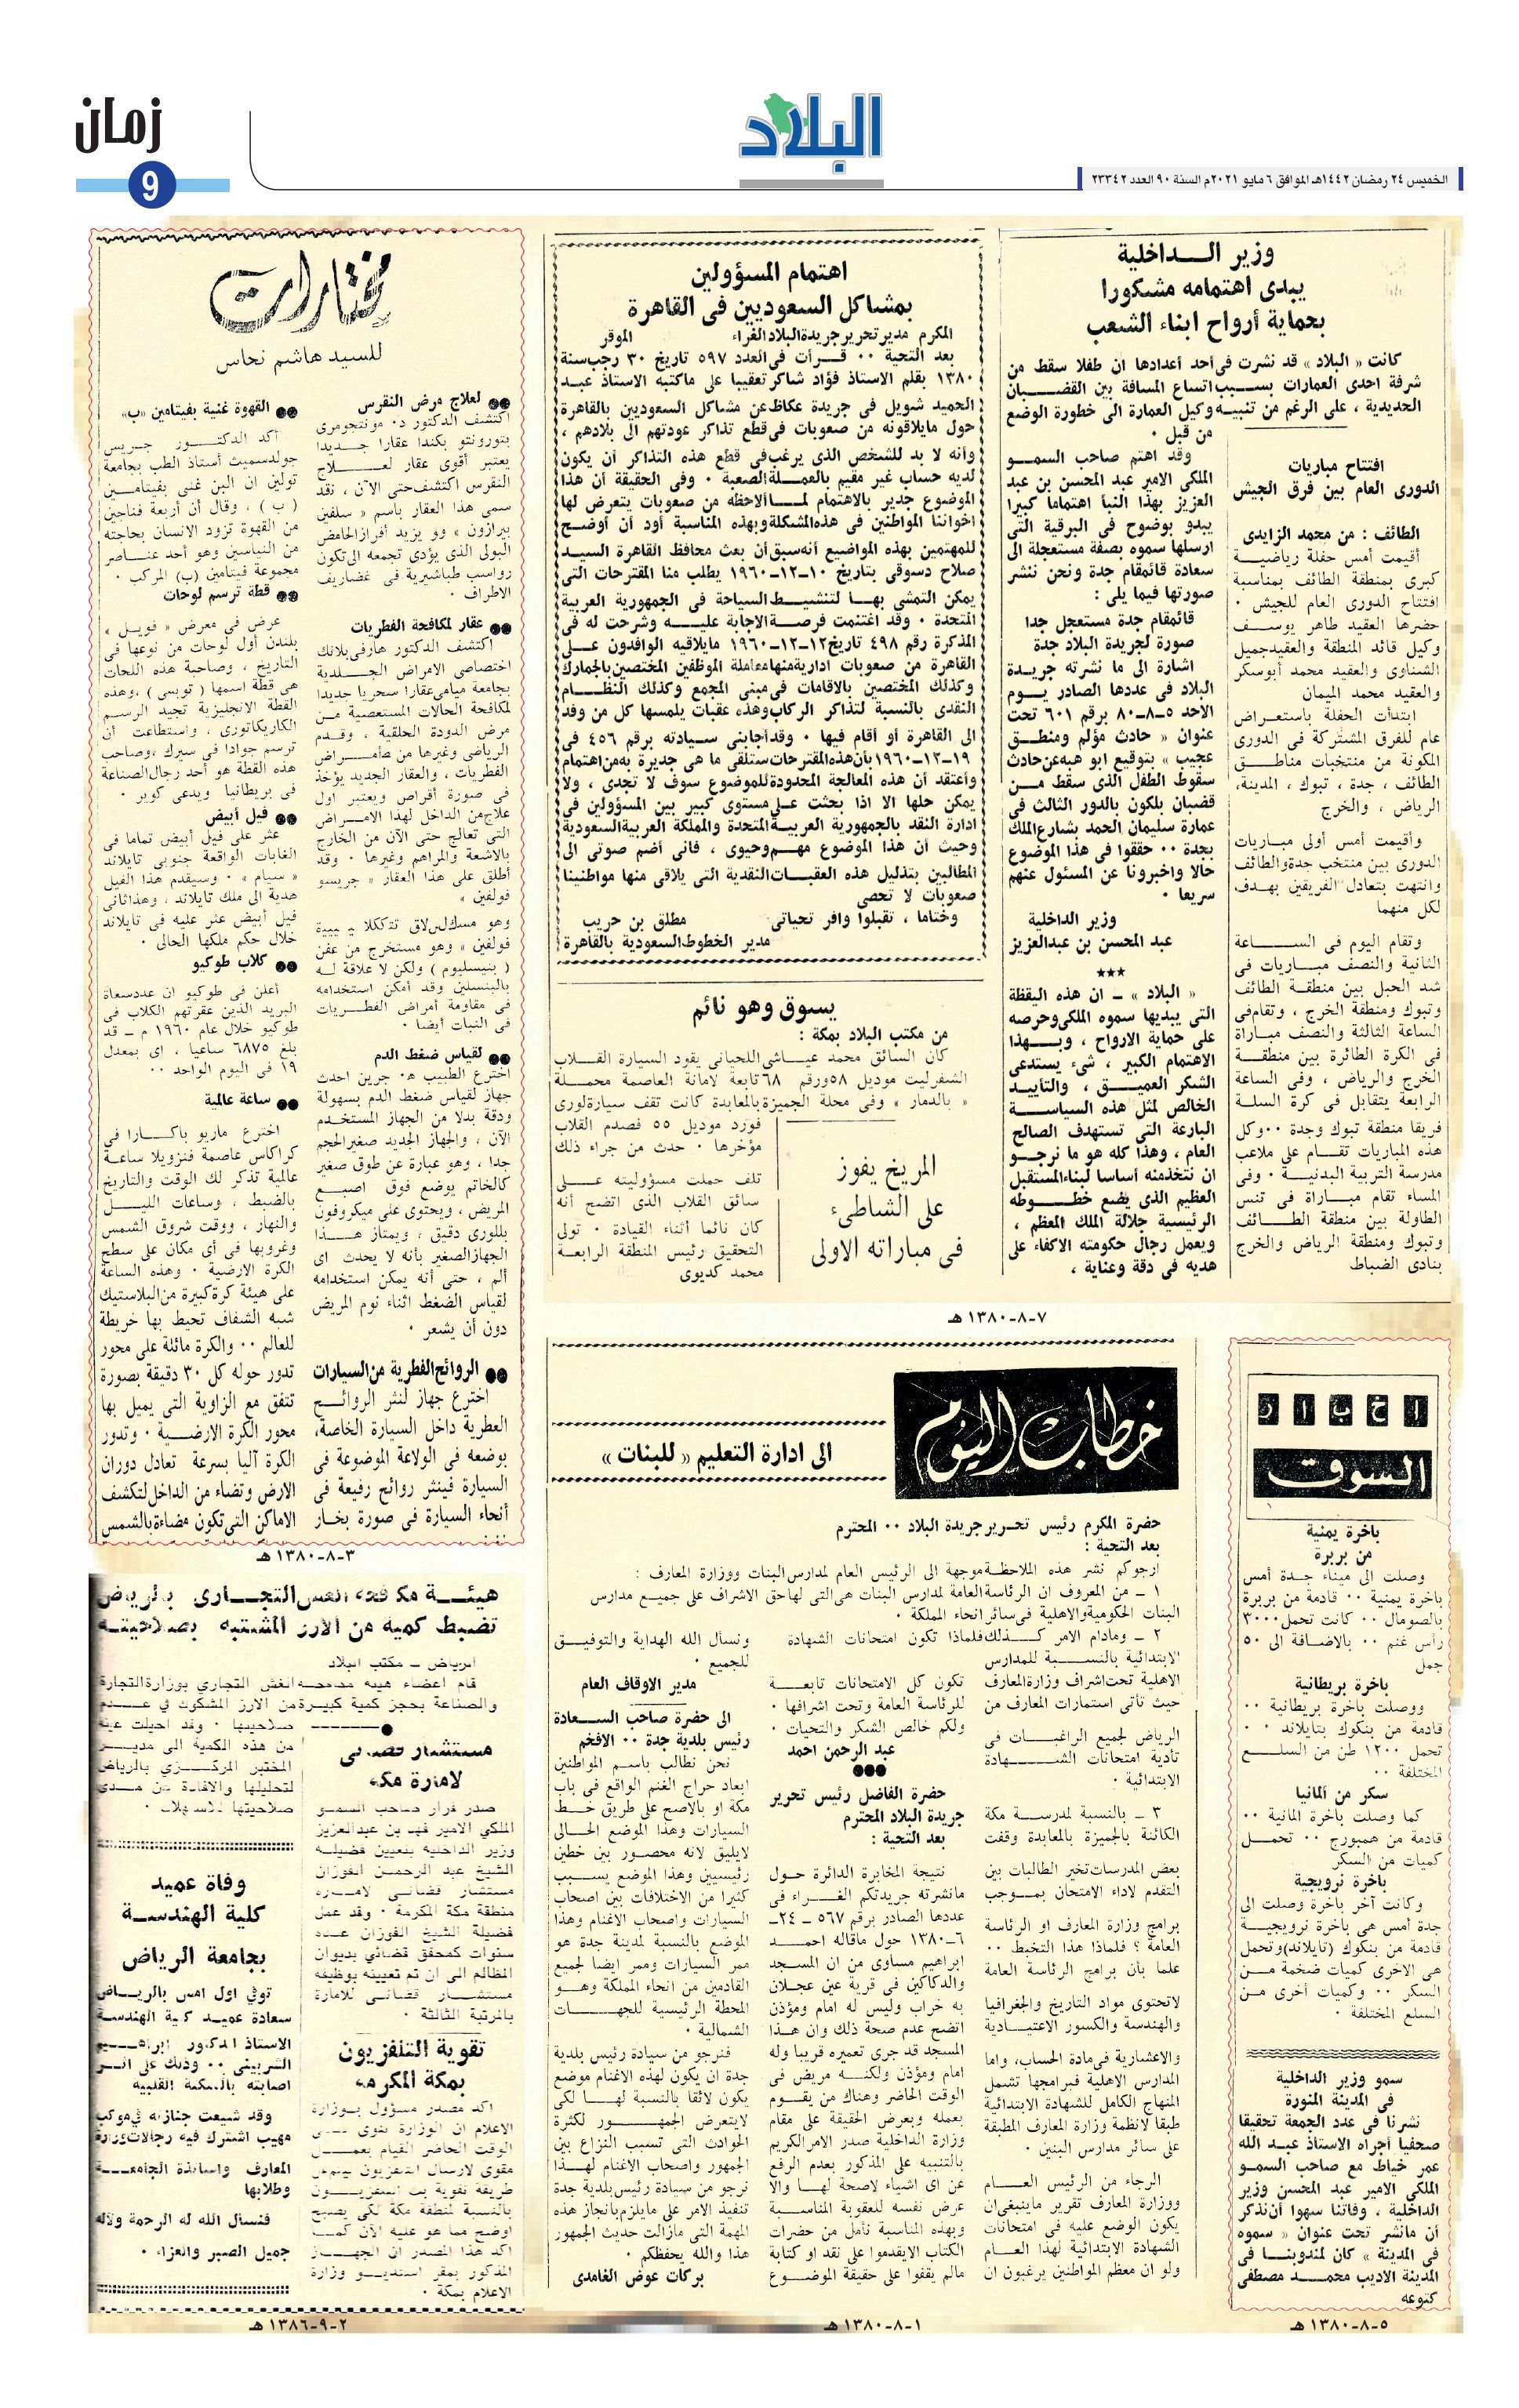 زمان
9
البلاد
الخميس ٢٤ رمضان ١٤٤٢هـ الموافق ٦ مايو ٢٠٢١م السنة ٩٠ العدد ٢٣٣٤٢
وزير الـــداخلية
يبدى اهتمامه مشكورا
بحماية أرواح ابناء الشعب
كانت « البلاد » قد نشرت فى أحد أعدادها ان طفلا سقط من
شرفة احدى العمارات بسبب اتساع المسافة بين القضبان
الحديدية ، على الرغم من تنبيه وكيل العمارة الى خطورة الوضع
من قبل ٠
وقد اهتم صاحب السمو
الملكى الامير عبد المحسن بن عبد
العزيز بهذا النبأ اهتماما كبيرا
يبدو بوضوح فى البرقية التى
ارسلها سموه بصفة مستعجلة الى
سعادة قائمقام جدة ونحن ننشر
صورتها فيما يلى :
قائمقام جدة مستعجل جدا
صورة لجريدة البلاد جدة
اشارة الى ما نشرته جريدة
البلاد فى عددها الصادر يوم
الاحد ٥-٨-٨٠ برقم ٦٠١ تحت
عنوان « حادث مؤلم ومنطق
عجيب » بتوقيع ابو هبه عن حادث
سقوط الطفل الذى سقط من
قضبان بلكون بالدور الثالث فى
عمارة سليمان الحمد بشارع الملك
بجدة ٠٠ حققوا فى هذا الموضوع
حالا واخبرونا عن المسئول عنهم
سريعا ٠
وزير الداخلية
عبد المحسن بن عبدالعزيز
***
« البلاد » - ان هذه اليقظة
التى يبديها سموه الملكى وحرصه
على حماية الارواح ، وبهذا
الاهتمام الكبير ، شىء يستدعى
الشكر العميق ، والتأييد
الخالص لمثل هذه السياسة
البارعة التى تستهدف الصالح
العام ، وهذا كله هو ما نرجو
ان نتخذمنه أساسا لبناء المستقبل
العظيم الذى يضع خطوطه
الرئيسية جلالة الملك المعظم ،
ويعمل رجال حكومته الاكفاء على
هديه فى دقة وعناية ،
افتتاح مباريات
الدورى العام بين فرق الجيش
الطائف : من محمد الزايدى
أقيمت أمس حفلة رياضية
كبرى بمنطقة الطائف بمناسبة
افتتاح الدورى العام للجيش ٠
حضرها العقيد طاهر يوسف
وكيل قائد المنطقة والعقيد جميل
الشناوى والعقيد محمد أبوسكر
والعقيد محمد الميمان
ابتدأت الحفلة باستعراض
عام للفرق المشتركة فى الدورى
المكونة من منتخبات مناطق
الطائف ، جدة ، تبوك ، المدينة،
الرياض ، والخرج
وأقيمت أمس أولى مباريات
الدورى بين منتخب جدة والطائف
وانتهت بتعادل الفريقين بهدف
لكل منهما
وتقام اليوم فى الساعة
الثانية والنصف مباريات فى
شد الحبل بين منطقة الطائف
وتبوك ومنطقة الخرج ، وتقام فى
الساعة الثالثة والنصف مباراة
فى الكرة الطائرة بين منطقة
الخرج والرياض ، وفى الساعة
الرابعة يتقابل فى كرة السلة
فريقا منطقة تبوك وجدة ٠٠ وكل
هذه المباريات تقام على ملاعب
مدرسة التربية البدنية ٠ وفى
المساء تقام مباراة فى تنس
الطاولة بين منطقة الطائف
وتبوك ومنطقة الرياض والخرج
بنادى الضباط
اهتمام المسؤولين
بمشاكل السعوديين فى القاهرة
المكرم مدير تحرير جريدة البلاد الغراء الموقر
بعد التحية ٠٠ قرأت فى العدد ٥٩٧ تاريخ ٣٠ رجب سنة
١٣٨٠ بقلم الاستاذ فؤاد شاكر تعقيبا على ماكتبه الاستاذ عبد
الحميد شويل فى جريدة عكاظ عن مشاكل السعوديين بالقاهرة
حول مايلاقونه من صعوبات فى قطع تذاكر عودتهم الى بلادهم ،
وأنه لا بد للشخص الذى يرغب فى قطع هذه التذاكر أن يكون
لديه حساب غير مقيم بالعملة الصعبة ٠ وفى الحقيقة أن هذا
الموضوع جدير بالاهتمام لما ألاحظه من صعوبات يتعرض لها
اخواننا المواطنين فى هذه المشكلة وبهذه المناسبة أود أن أوضح
للمهتمين بهذه المواضيع أنه سبق أن بعث محافظ القاهرة السيد
صلاح دسوقى بتاريخ ١٠-١٢-١٩٦٠ يطلب منا المقترحات التى
يمكن التمشى بها لتنشيط السياحة فى الجمهورية العربية
المتحدة ٠ وقد اغتنمت فرصة الاجابة عليه وشرحت له فى
المذكرة رقم ٤٩٨ تاريخ ١٢-١٢-١٩٦٠ مايلاقيه الوافدون على
القاهرة من صعوبات ادارية منها معاملة الموظفين المختصين بالجمارك
وكذلك المختصين بالاقامات فى مبنى المجمع وكذلك النظام
النقدى بالنسبة لتذاكر الركاب وهذه عقبات يلمسها كل من وفد
الى القاهرة أو أقام فيها ٠ وقد أجابنى سيادته برقم ٤٥٦ فى
١٩-١٢-١٩٦٠ بأن هذه المقترحات ستلقى ما هى جديرة به من اهتمام
وأعتقد أن هذه المعالجة المحدودة للموضوع سوف لا تجدى ، ولا
يمكن حلها الا اذا بحثت على مستوى كبير بين المسؤولين فى
ادارة النقد بالجمهورية العربية المتحدة والمملكة العربية السعودية
وحيث أن هذا الموضوع مهم وحيوى ، فانى أضم صوتى الى
المطالبين بتذليل هذه العقبات النقدية التى يلاقى منها مواطنينا
صعوبات لا تحصى
وختاما ، تقبلوا وافر تحياتى مطلق بن حريب
مدير الخطوط السعودية بالقاهرة
يسوق وهو نائم
من مكتب البلاد بمكة :
كان السائق محمد عياشى اللحيانى يقود السيارة القلاب
الشفرليت موديل ٥٨ ورقم ٦٨ تابعة لامانة العاصمة محملة
« بالدمار » وفى محلة الجميزة بالمعابدة كانت تقف سيارة لورى
فورد موديل ٥٥ فصدم القلاب
مؤخرها ٠ حدث من جراء ذلك
تلف حملت مسؤوليته على
سائق القلاب الذى اتضح أنه
كان نائما أثناء القيادة ٠ تولى
التحقيق رئيس المنطقة الرابعة
محمد كديوى
المريخ يفوز
على الشاطىء
فى مباراته الاولى
٧-٨-١٣٨٠ هـ
مختارات
للسيد هاشم نحاس
لعلاج مرض النقرس
اكتشف الدكتور د٠ مونتجومرى
بتورونتو بكندا عقارا جديدا
يعتبر أقوى عقار لعلاج
النقرس اكتشف حتى الآن ، نقد
سمى هذا العقار باسم « سلفين
بيرازون » وو يزيد أفراز الحامض
البولى الذى يؤدى تجمعه الى تكون
رواسب طباشيرية فى غضاريف
الاطراف ٠
عقار لمكافحة الفطريات
اكتشف الدكتور هارفى بلانك
اختصاصى الامراض الجلدية
بجامعة ميامى عقارا سحريا جديدا
لمكافحة الحالات المستعصية من
مرض الدودة الحلقية ، وقدم
الرياضى وغيرها من أمراض
الفطريات ، والعقار الجديد يؤخذ
فى صورة أقراص ويعتبر اول
علاج من الداخل لهذا الامراض
التى تعالج حتى الآن من الخارج
بالاشعة والمراهم وغيرها ٠ وقد
أطلق على هذا العقار « جريسو
فولفين »
فولفين » وهو مستخرج من عفن
( بنيسليوم ) ولكن لا علاقة له
بالبنسلين وقد أمكن استخدامه
فى مقاومة أمراض الفطريات
فى النبات أيضا ٠
لقياس ضغط الدم
اخترع الطبيب هـ٠ جرين احدث
جهاز لقياس ضغط الدم بسهولة
ودقة بدلا من الجهاز المستخدم
الآن ، والجهاز الجديد صغير الحجم
جدا ، وهو عبارة عن طوق صغير
كالخاتم يوضع فوق اصبع
المريض ، ويحتوى على ميكروفون
بللورى دقيق ، ويمتاز هذا
الجهاز الصغير بأنه لا يحدث اى
ألم ، حتى أنه يمكن استخدامه
لقياس الضغط اثناء نوم المريض
دون أن يشعر ٠
الروائح الفطرية من السيارات
اخترع جهاز لنثر الروائح
العطرية داخل السيارة الخاصة،
بوضعه فى الولاعة الموضوعة فى
السيارة فينثر روائح رفيعة فى
أنحاء السيارة فى صورة بخار
القهوة غنية بفيتامين «ب»
أكد الدكتور جريس
جولدسميث أستاذ الطب بجامعة
تولين ان البن غنى بفيتامين
( ب ) ، وقال أن أربعة فناجين
من القهوة تزود الانسان بحاجته
من النياسين وهو أحد عناصر
مجموعة فيتامين (ب) المركب ٠
قطة ترسم لوحات
عرض فى معرض « فويل »
بلندن أول لوحات من نوعها فى
التاريخ ، وصاحبة هذه اللحات
هى قطة اسمها ( توبسى ) ،وهذه
القطة الانجليزية تجيد الرسم
الكاريكاتورى ، واستطاعت أن
ترسم جوادا فى سيرك ،وصاحب
هذه القطة هو أحد رجال الصناعة
فى بريطانيا ويدعى كوبر ٠
فيل أبيض
عثر على فيل أبيض تماما فى
الغابات الواقعة جنوبى تايلاند
« سيام » ٠ وسيقدم هذا الفيل
هدية الى ملك تايلاند ، وهذا ثانى
فيل أبيض عثر عليه فى تايلاند
خلال حكم ملكها الحالى ٠
كلاب طوكيو
أعلن فى طوكيو ان عدد سعاة
البريد الذين عقرتهم الكلاب فى
طوكيو خلال عام ١٩٦٠ م - قد
بلغ ٦٨٧٥ ساعيا ، اى بمعدل
١٩ فى اليوم الواحد ٠٠
ساعة عالمية
اخترع ماريو باكارا فى
كراكاس عاصمة فنزويلا ساعة
عالمية تذكر لك الوقت والتاريخ
بالضبط ، وساعات الليل
والنهار ، ووقت شروق الشمس
وغروبها فى أى مكان على سطح
الكرة الارضية ٠ وهذه الساعة
على هيئة كرة كبيرة من البلاستيك
شبه الشفاف تحيط بها خريطة
للعالم ٠٠ والكرة مائلة على محور
تدور حوله كل ٣٠ دقيقة بصورة
تتفق مع الزاوية التى يميل بها
محور الكرة الارضية ٠ وتدور
الكرة آليا بسرعة تعادل دوران
الارض وتضاء من الداخل لتكشف
الاماكن التى تكون مضاءة بالشمس
٣-٨-١٣٨٠ هـ
اخبار
السوق
باخرة يمنية
من بربرة
وصلت الى ميناء جدة أمس
باخرة يمنية ٠٠ قادمة من بربرة
بالصومال ٠٠ كانت تحمل ٣٠٠٠
رأس غنم ٠٠ بالاضافة الى ٥٠
جمل
باخرة بريطانية
ووصلت باخرة بريطانية ٠٠
قادمة من بنكوك بتايلاند ٠٠
تحمل ١٢٠٠ طن من السلع
المختلفة ٠٠
سكر من ألمانيا
كما وصلت باخرة المانية ٠٠
قادمة من همبورج ٠٠ تحمل
كميات من السكر
باخرة نرويجية
وكانت آخر باخرة وصلت الى
جدة أمس هى باخرة نرويجية
قادمة من بنكوك (تايلاند) وتحمل
هى الاخرى كميات ضخمة من
السكر ٠٠ وكميات أخرى من
السلع المختلفة ٠
سمو وزير الداخلية
فى المدينة المنورة
نشرنا فى عدد الجمعة تحقيقا
صحفيا أجراه الاستاذ عبد الله
عمر خياط مع صاحب السمو
الملكى الامير عبد المحسن وزير
الداخلية ، وفاتنا سهوا أن نذكر
أن مانشر تحت عنوان « سموه
فى المدينة » كان لمندوبنا فى
المدينة الاديب محمد مصطفى
كتوعه
٥-٨-١٣٨٠ هـ
خطاب اليوم
الى ادارة التعليم « للبنات »
حضرة المكرم رئيس تحرير جريدة البلاد ٠٠ المحترم
بعد التحية :
ارجوكم نشر هذه الملاحظة موجهة الى الرئيس العام لمدارس البنات ووزارة المعارف :
١ - من المعروف ان الرئاسة العامة لمدارس البنات هى التى لها حق الاشراف على جميع مدارس
البنات الحكومية والاهلية فى سائر انحاء المملكة ٠
٢ - ومادام الامر كذلك فلماذا تكون امتحانات الشهادة
الابتدائية بالنسبة للمدارس
الاهلية تحت اشراف وزارة المعارف
حيث تأتى استمارات المعارف من
الرياض لجميع الراغبات فى
تأدية امتحانات الشهادة
الابتدائية ٠
٣ - بالنسبة لمدرسة مكة
الكائنة بالجميزة بالمعابدة وقفت
بعض المدرسات تخير الطالبات بين
التقدم لاداء الامتحان بموجب
برامج وزارة المعارف او الرئاسة
العامة ؟ فلماذا هذا التخبط ٠٠
علما بان برامج الرئاسة العامة
لاتحتوى مواد التاريخ والجغرافيا
والهندسة والكسور الاعتيادية
والاعشارية فى مادة الحساب، واما
المدارس الاهلية فبرامجها تشمل
المنهاج الكامل للشهادة الابتدائية
طبقا لانظمة وزارة المعارف المطبقة
على سائر مدارس البنين ٠
الرجاء من الرئيس العام
ووزارة المعارف تقرير ماينبغى ان
يكون الوضع عليه فى امتحانات
الشهادة الابتدائية لهذا العام
ولو ان معظم المواطنين يرغبون ان
تكون كل الامتحانات تابعة
للرئاسة العامة وتحت اشرافها ٠
ولكم خالص الشكر والتحيات ٠
عبد الرحمن احمد
حضرة الفاضل رئيس تحرير
جريدة البلاد المحترم
بعد التحية :
نتيجة المخابرة الدائرة حول
مانشرته جريدتكم الغراء فى
عددها الصادر برقم ٥٦٧ - ٢٤-
٦-١٣٨٠ حول ماقاله احمد
ابراهيم مساوى من ان المسجد
والدكاكين فى قرية عين عجلان
به خراب وليس له امام ومؤذن
اتضح عدم صحة ذلك وان هذا
المسجد قد جرى تعميره قريبا وله
امام ومؤذن ولكنه مريض فى
الوقت الحاضر وهناك من يقوم
بعمله وبعرض الحقيقة على مقام
وزارة الداخلية صدر الامر الكريم
بالتنبيه على المذكور بعدم الرفع
عن اى اشياء لاصحة لها والا
عرض نفسه للعقوبة المناسبة
وبهذه المناسبة نأمل من حضرات
الكتاب الايقدموا على نقد او كتابة
مالم يقفوا على حقيقة الموضوع
ونسأل الله الهداية والتوفيق
للجميع ٠
مدير الاوقاف العام
الى حضرة صاحب السعادة
رئيس بلدية جدة ٠٠ الافخم
نحن نطالب باسم المواطنين
ابعاد حراج الغنم الواقع فى باب
مكة او بالاصح على طريق خط
السيارات وهذا الموضع الحالى
لايليق لانه محصور بين خطين
رئيسيين وهذا الموضع يسبب
كثيرا من الاختلافات بين اصحاب
السيارات واصحاب الاغنام وهذا
الموضع بالنسبة لمدينة جدة هو
ممر السيارات وممر ايضا لجميع
القادمين من انحاء المملكة وهو
المحطة الرئيسية للجهات
الشمالية ٠
فنرجو من سيادة رئيس بلدية
جدة ان يكون لهذه الاغنام موضع
يكون لائقا بالنسبة لها لكى
لايتعرض الجمهور لكثرة
الحوادث التى تسبب النزاع بين
الجمهور واصحاب الاغنام لهذا
نرجو من سيادة رئيس بلدية جدة
تنفيذ الامر على مايلزم بانجاز هذه
المهمة التى مازالت حديث الجمهور
هذا والله يحفظكم ٠
بركات عوض الغامدى
١-٨-١٣٨٠ هـ
هيئة مكافحة الغش التجارى بالرياض
تضبط كمية من الارز المشتبه بصلاحيته
الرياض - مكتب البلاد
قام اعضاء هيئة مكافحة الغش التجاري بوزارة التجارة
والصناعة بحجز كمية كبيرة من الارز المشكوك في عدم
صلاحيتها ٠ وقد احيلت عينة
من هذه الكمية الى مدير
المختبر المركزي بالرياض
لتحليلها والافادة عن مدى
صلاحيتها للاستهلاك ٠
مستشار قضائى
لامارة مكة
صدر قرار صاحب السمو
الملكي الامير فهد بن عبدالعزيز
وزير الداخلية بتعيين فضيلة
الشيخ عبد الرحمن الفوزان
مستشار قضائي لامارة
منطقة مكة المكرمة ٠ وقد عمل
فضيلة الشيخ الفوزان عدة
سنوات كمحقق قضائي بديوان
المظالم الى ان تم تعيينه بوظيفة
مستشار قضائي للامارة
بالمرتبة الثالثة ٠
تقوية التلفزيون
بمكة المكرمة
اكد مصدر مسؤول بوزارة
الاعلام ان الوزارة تنوى فى
الوقت الحاضر القيام بعمل
مقوى لارسال التلفزيون
طريقة تقوية بث التلفزيون
بالنسبة لمنطقة مكة لكي يصبح
اوضح مما هو عليه الآن كما
اكد هذا المصدر ان الجهاز
المذكور بمقر استديو وزارة
الاعلام بمكة ٠
وفاة عميد
كلية الهندسة
بجامعة الرياض
توفي اول امس بالرياض
سعادة عميد كلية الهندسة
الاستاذ الدكتور ابراهيم
الشربيني ٠٠ وذلك على اثر
اصابته بالسكتة القلبية
وقد شيعت جنازته في موكب
مهيب اشترك فيه رجالات وزارة
المعارف واساتذة الجامعة
وطلابها
فنسأل الله له الرحمة ولآله
جميل الصبر والعزاء ٠
٢-٩-١٣٨٦ هـ